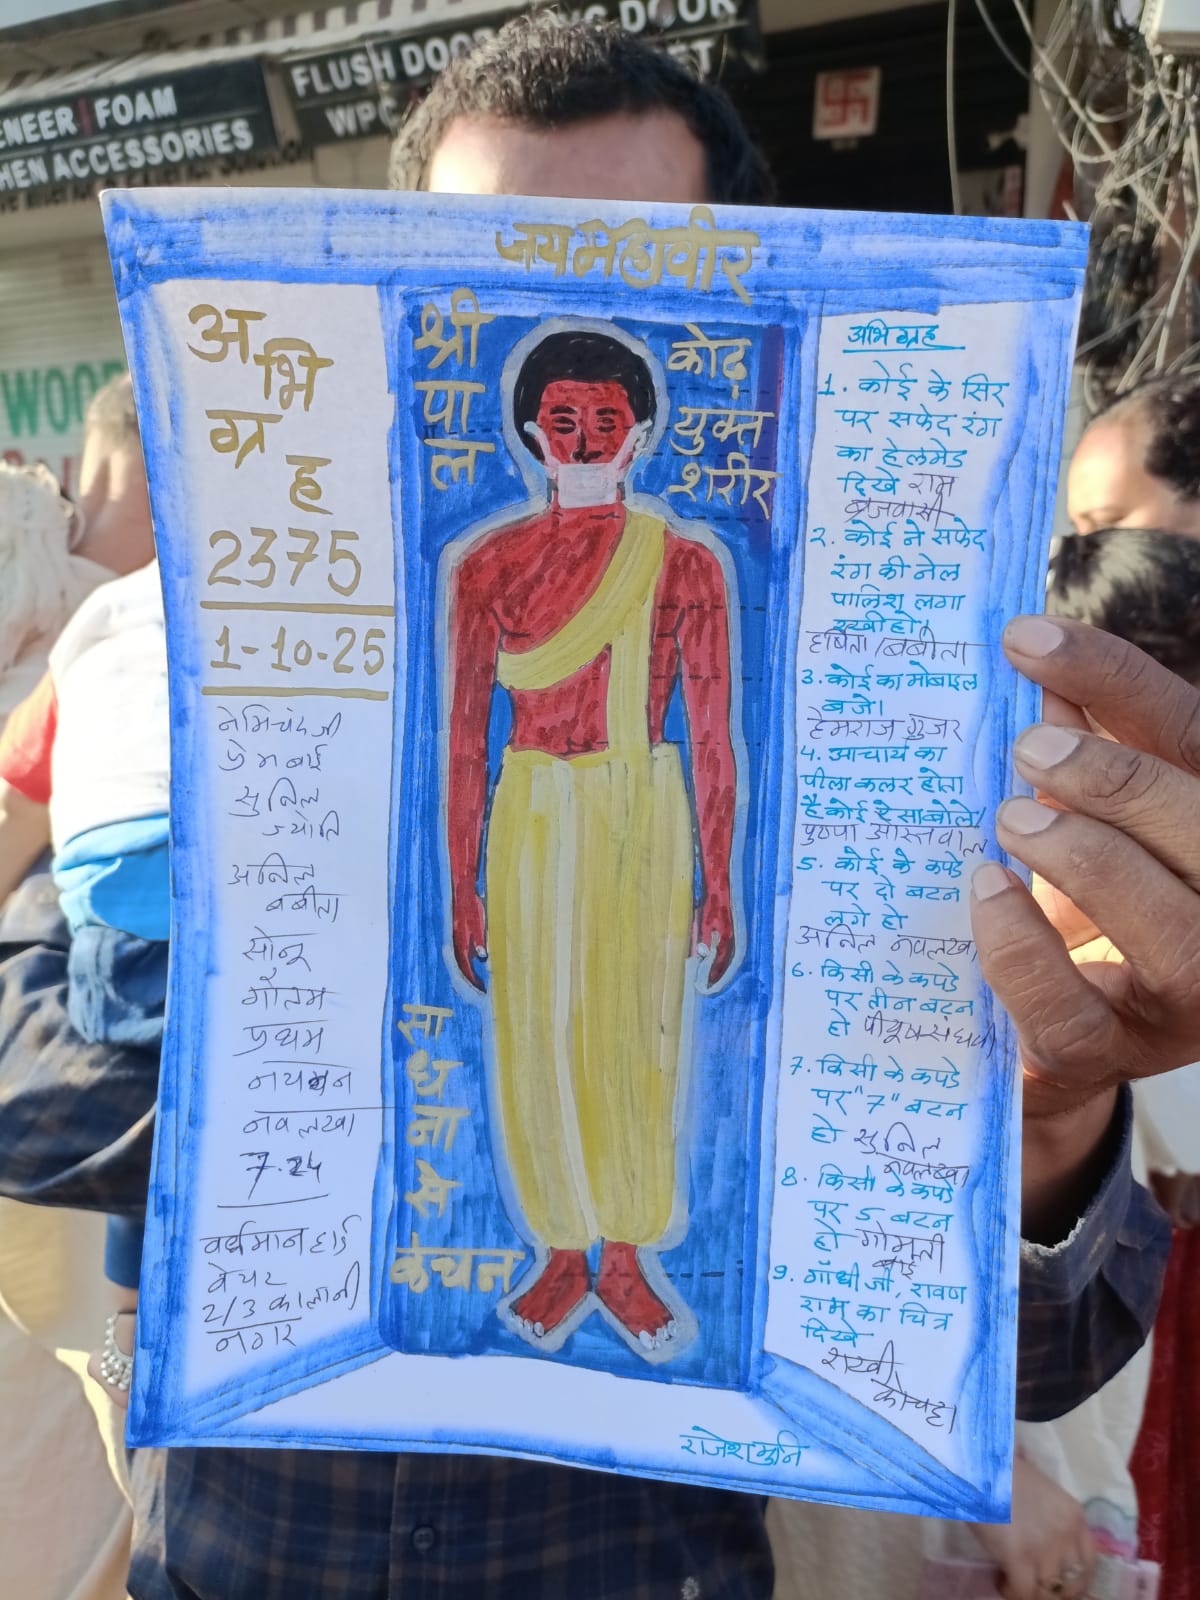 FLUSH DOOR
WPC
FOAM
ACCESSORIES
जय महावीर
अभिग्रह
2375
1-10-25
नेमिचंद जी
प्रेम बाई
सुनिल
ज्योति
अनिल
बबीता
सोनू
गौतम
प्रथम
नवलखा
7.24
वर्धमान हार्ड
वेयर
2/3 कालानी
नगर
श्रीपाल
कोढ़
युक्त
शरीर
साधना से
कंचन
अभिग्रह
1. कोई के सिर
पर सफेद रंग
का हेलमेड
दिखे राम
ब्रजवासी
2. कोई ने सफेद
रंग की नेल
पालिश लगा
रखी हो।
हर्षिता / बबीता
3. कोई का मोबाइल
बजे।
हेमराज गुजर
4. आचार्य का
पीला कलर होता
है कोई ऐसा बोले।
पुष्पा ओस्तवाल
5. कोई के कपडे
पर दो बटन
लगे हो
अनिल नवलखा
6. किसी के कपडे
पर तीन बटन
हो पीयूष संघवी
7. किसी के कपडे
पर "7" बटन
हो सुनिल
नवलखा
8. किसी के कपडे
पर 5 बटन
हो गोमती
बाई
9. गाँधी जी, रावण
राम का चित्र
दिखे
राखी
राजेशमुनि